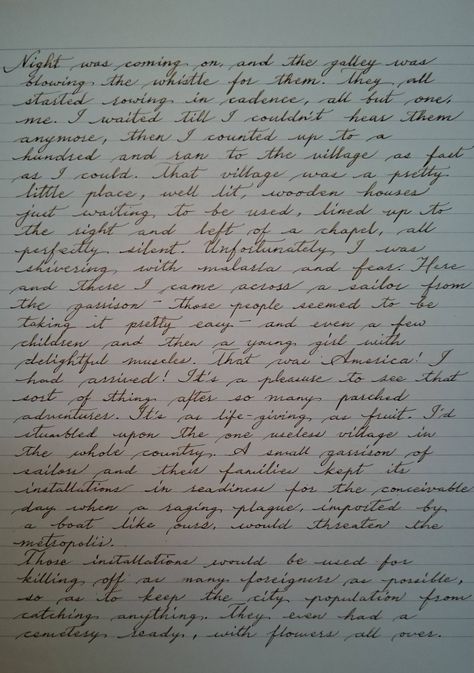 Night was coming on, and the galley was
blowing the whistle for them. They all
started rowing in cadence, all but one,
me. I waited till I couldn't hear them
anymore, then I counted up to a
hundred and ran to the village as fast
as I could. That village was a pretty
little place, well lit, wooden houses
just waiting to be used, lined up to
the right and left of a chapel, all
perfectly silent. Unfortunately I was
shivering with malaria and fear. Here
and there I came across a sailor from
the garrison - those people seemed to be
taking it pretty easy - and even a few
children and then a young girl with
delightful muscles. That was America! I
had arrived! It's a pleasure to see that
sort of thing after so many parched
adventures. It's as life-giving as fruit. I'd
stumbled upon the one useless village in
the whole country. A small garrison of
sailors and their families kept its
installations in readiness for the conceivable
day when a raging plague, imported by
a boat like ours, would threaten the
metropolis.
Those installations would be used for
killing off as many foreigners as possible,
so as to keep the city population from
catching anything. They even had a
cemetery ready, with flowers all over.